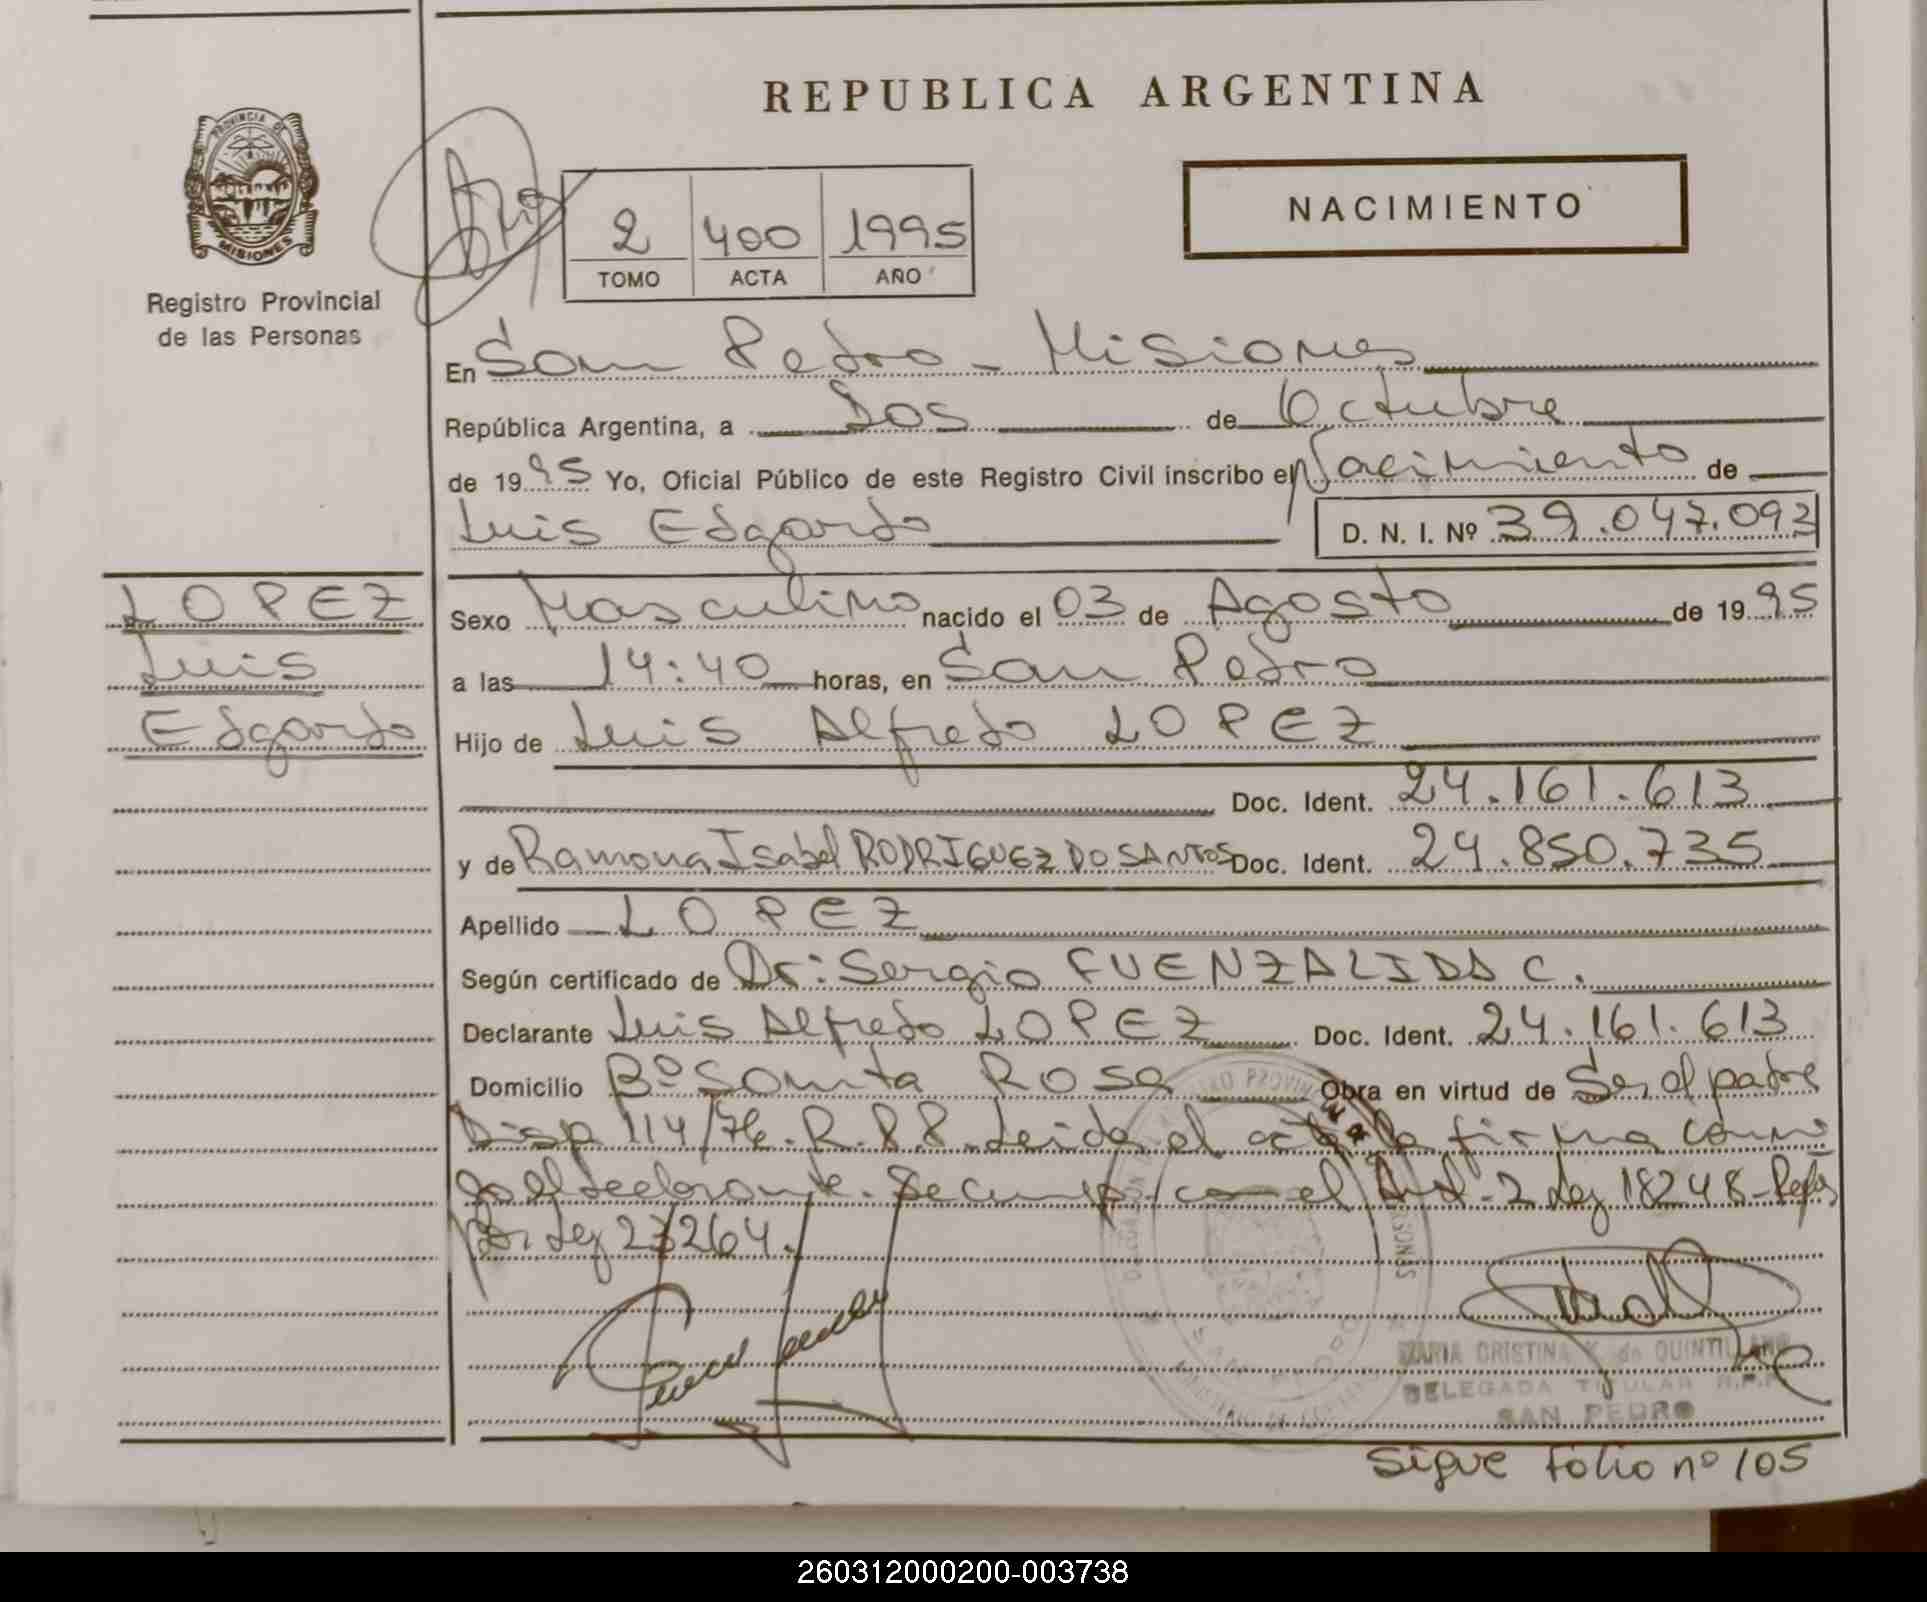 REPUBLICA ARGENTINA
PROVINCIA DE
MISIONES
Registro Provincial
de las Personas
2 400 1995
TOMO ACTA AÑO
NACIMIENTO
En San Pedro - Misiones
República Argentina, a Dos de Octubre
de 1995 Yo, Oficial Público de este Registro Civil inscribo el Nacimiento de
Luis Edgardo D. N. I. Nº 39.047.093
LOPEZ
Luis
Edgardo
Sexo Masculino nacido el 03 de Agosto de 1995
a las 14:40 horas, en San Pedro
Hijo de Luis Alfredo LOPEZ
Doc. Ident. 24.161.613
y de Ramona Isabel RODRIGUEZ DO SANTOS Doc. Ident. 24.850.735
Apellido LOPEZ
Según certificado de Dr: Sergio FUENZALIDA C.
Declarante Luis Alfredo LOPEZ Doc. Ident. 24.161.613
Domicilio Bº Santa Rosa Obra en virtud de Ser el padre
Disp 114/76. R.P.P. Leida el acta la firma conmi
go el declarante. Se cump. con el Art. 2 Ley 18248 -
Por Ley 23264.
MARIA CRISTINA K. de QUINTILIANO
DELEGADA TITULAR R.P.P.
SAN PEDRO
Sigue Folio nº 105
260312000200-003738